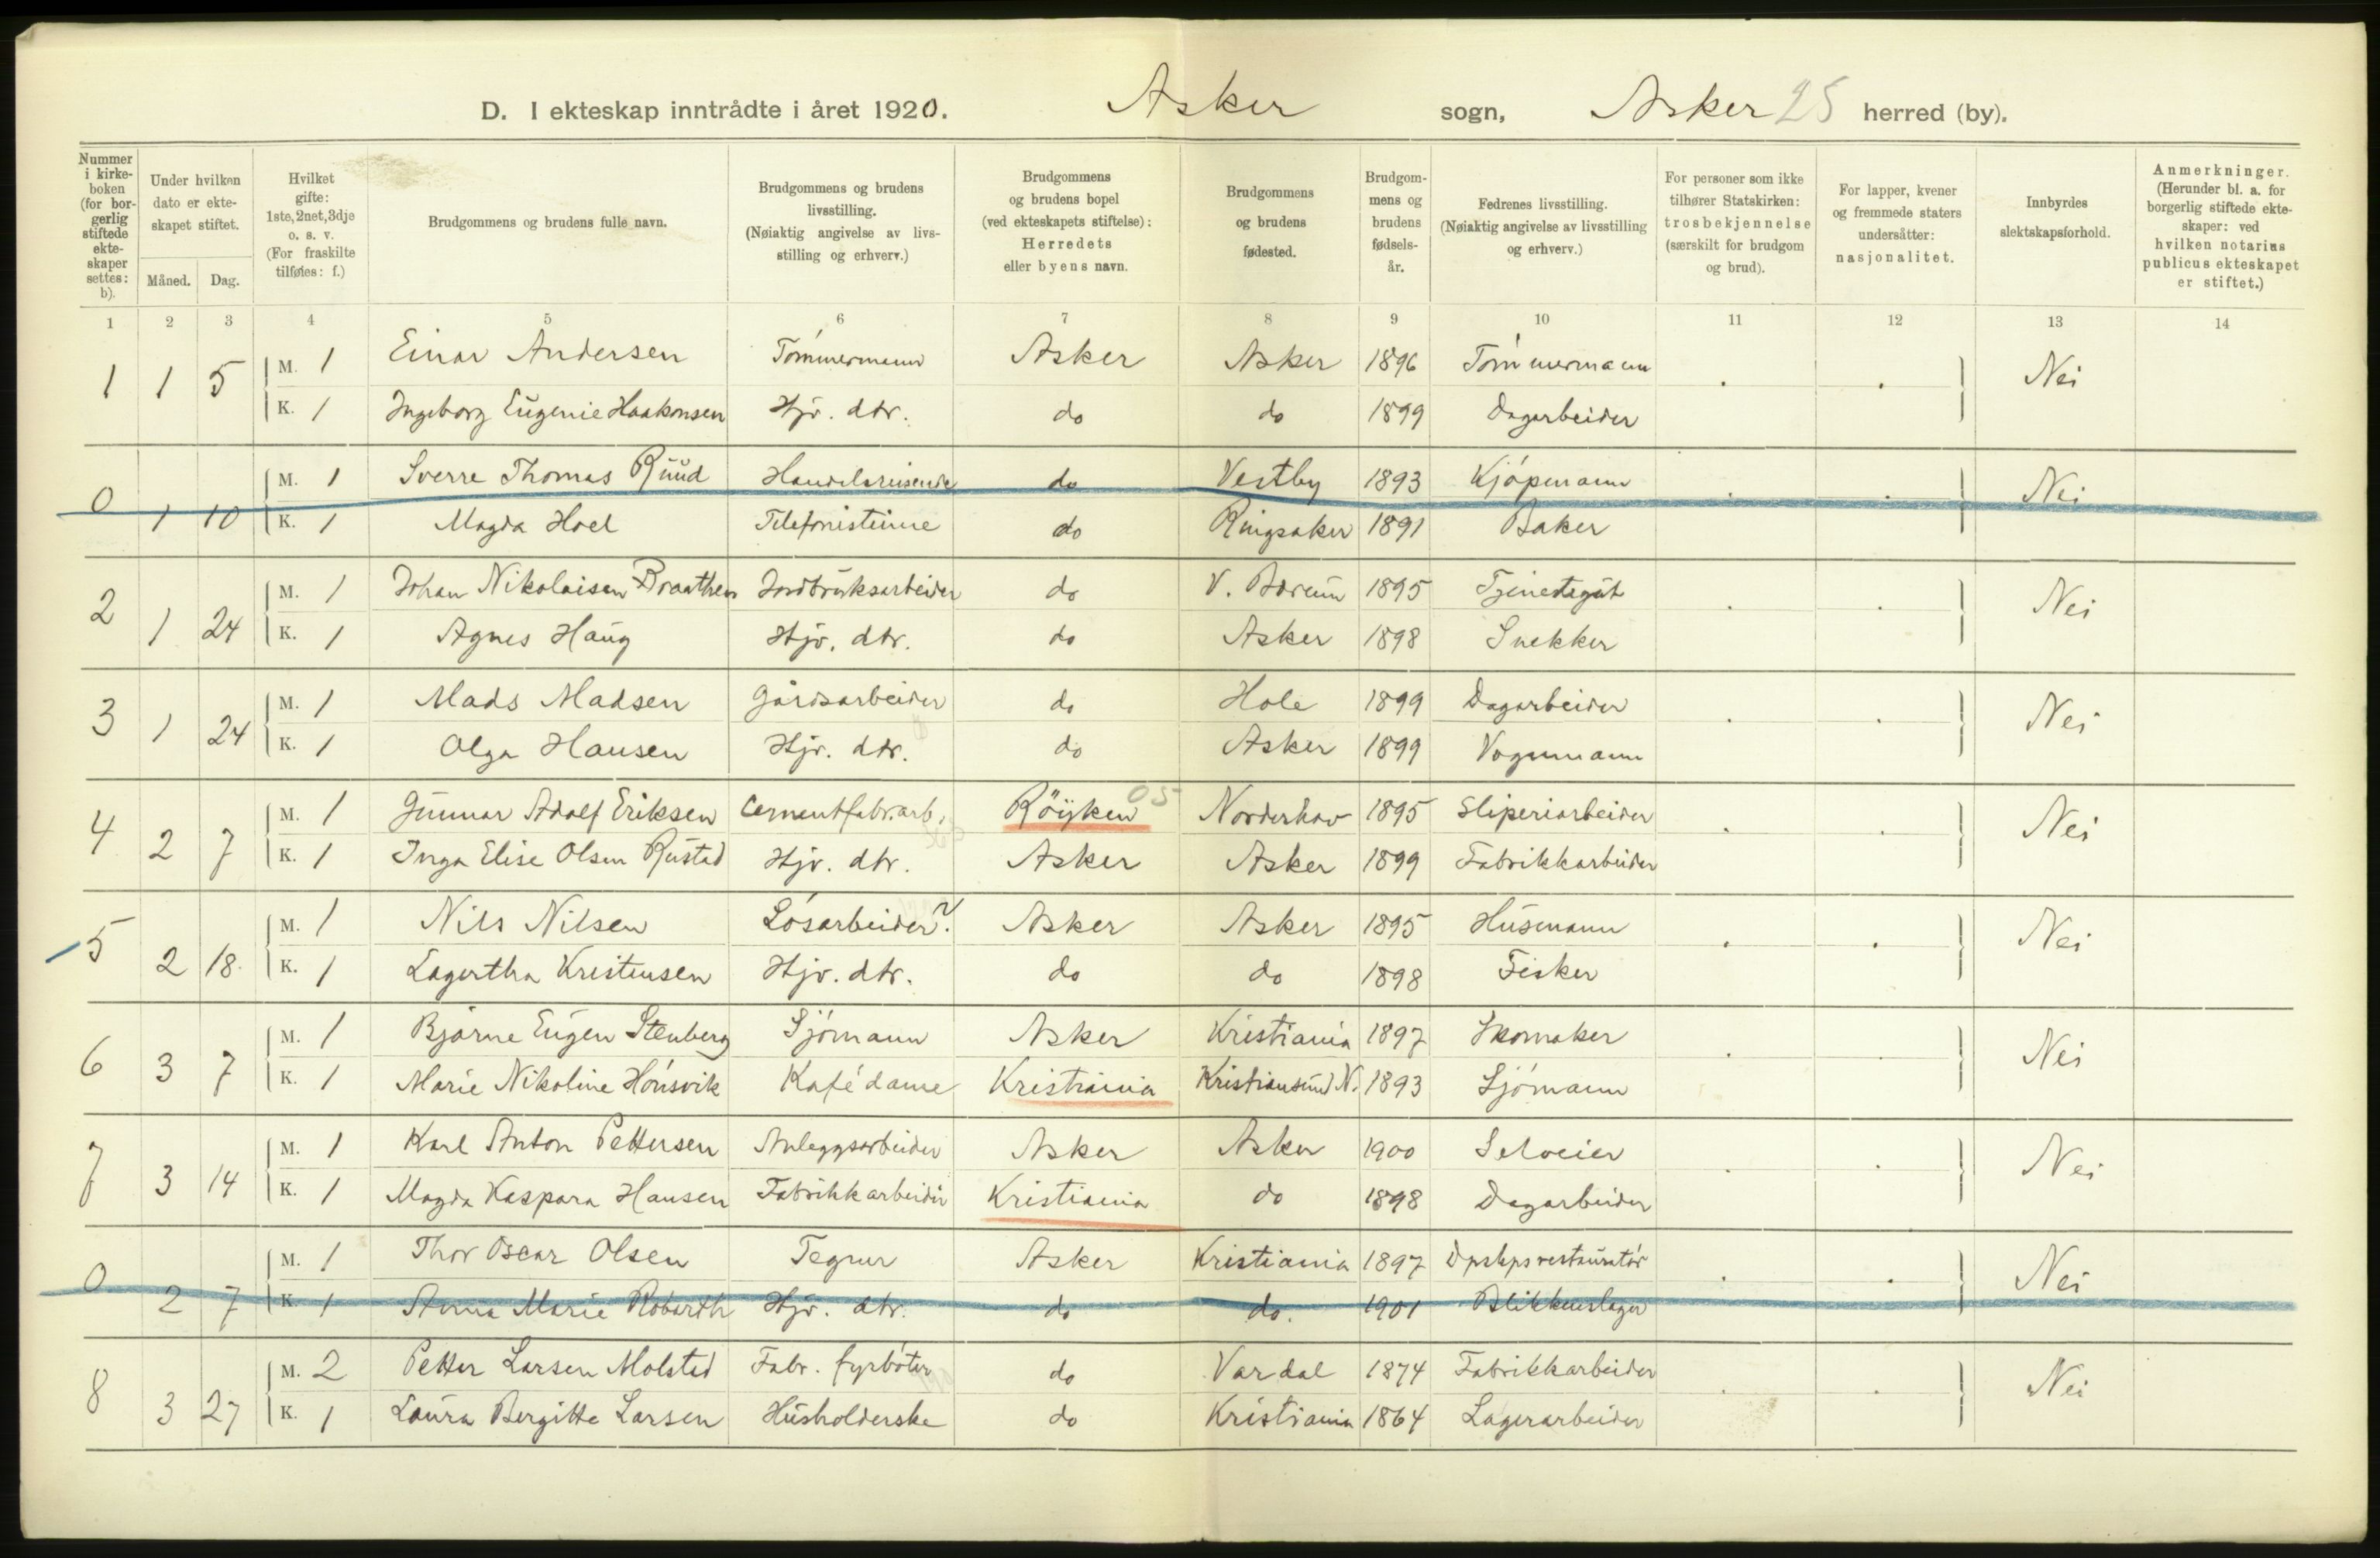 D. I ekteskap inntrådte i året 1920. Asker sogn, Asker 25 herred (by).
Nummer i kirkeboken (for borgerlig stiftede ekteskaper settes: b).
Under hvilken dato er ekteskapet stiftet.
Måned. Dag.
Hvilket gifte: 1ste, 2net, 3dje o. s. v. (For fraskilte tilføies: f.)
Brudgommens og brudens fulle navn.
Brudgommens og brudens livsstilling. (Nøiaktig angivelse av livsstilling og erhverv.)
Brudgommens og brudens bopel (ved ekteskapets stiftelse): Herredets eller byens navn.
Brudgommens og brudens fødested.
Brudgommens og brudens fødselsår.
Fedrenes livsstilling. (Nøiaktig angivelse av livsstilling og erhverv.)
For personer som ikke tilhører Statskirken: trosbekjennelse (særskilt for brudgom og brud).
For lapper, kvener og fremmede staters undersåtter: nasjonalitet.
Innbyrdes slektskapsforhold.
Anmerkninger. (Herunder bl. a. for borgerlig stiftede ekteskaper: ved hvilken notarius publicus ekteskapet er stiftet.)
1 2 3 4 5 6 7 8 9 10 11 12 13 14
1 1 5 M. 1 Einar Andersen Tømmermann Asker Asker 1896 Tømmermann Nei
K. 1 Ingeborg Eugenie Haakonsen Hjv. dtr. do do 1899 Dagarbeider
0 1 10 M. 1 Sverre Thomas Ruud Handelsreisende do Vestby 1893 Kjøpmann Nei
K. 1 Magda Hoel Telefonistinne do Ringsaker 1891 Baker
2 1 24 M. 1 Johan Nikolaisen Braathen Jordbruksarbeider do V. Bærum 1895 Tjenestegut Nei
K. 1 Agnes Haug Hjv. dtr. do Asker 1898 Snekker
3 1 24 M. 1 Mads Madsen Gårdsarbeider do Hole 1899 Dagarbeider Nei
K. 1 Olga Hansen Hjv. dtr. do Asker 1899 Vognmann
4 2 7 M. 1 Gunnar Adolf Eriksen Cementfabr.arb. Röyken 05 Norderhov 1895 Sliperiarbeider Nei
K. 1 Inga Elise Olsen Rustad Hjv. dtr. Asker Asker 1899 Fabrikkarbeider
5 2 18 M. 1 Nils Nilsen Løsarbeider? Asker Asker 1895 Husmann Nei
K. 1 Lagertha Kristensen Hjv. dtr. do do 1898 Fisker
6 3 7 M. 1 Bjarne Eugen Stenberg Sjømann Asker Kristiania 1897 Skomaker Nei
K. 1 Marie Nikoline Hønsvik Kafédame Kristiania Kristiansund N. 1893 Sjømann
7 3 14 M. 1 Karl Anton Pettersen Anleggsarbeider Asker Asker 1900 Selveier Nei
K. 1 Magda Kaspara Hansen Fabrikkarbeider Kristiania do 1898 Dagarbeider
0 2 7 M. 1 Thor Oscar Olsen Tegner Asker Kristiania 1897 Dpskpsrestauratör Nei
K. 1 Anna Marie Robarth Hjv. dtr. do do. 1901 Blikkenslager
8 3 27 M. 2 Petter Larsen Molstad Fabr. fyrbøter do Vardal 1874 Fabrikkarbeider Nei
K. 1 Laura Bergitte Larsen Husholderske do Kristiania 1864 Lagerarbeider